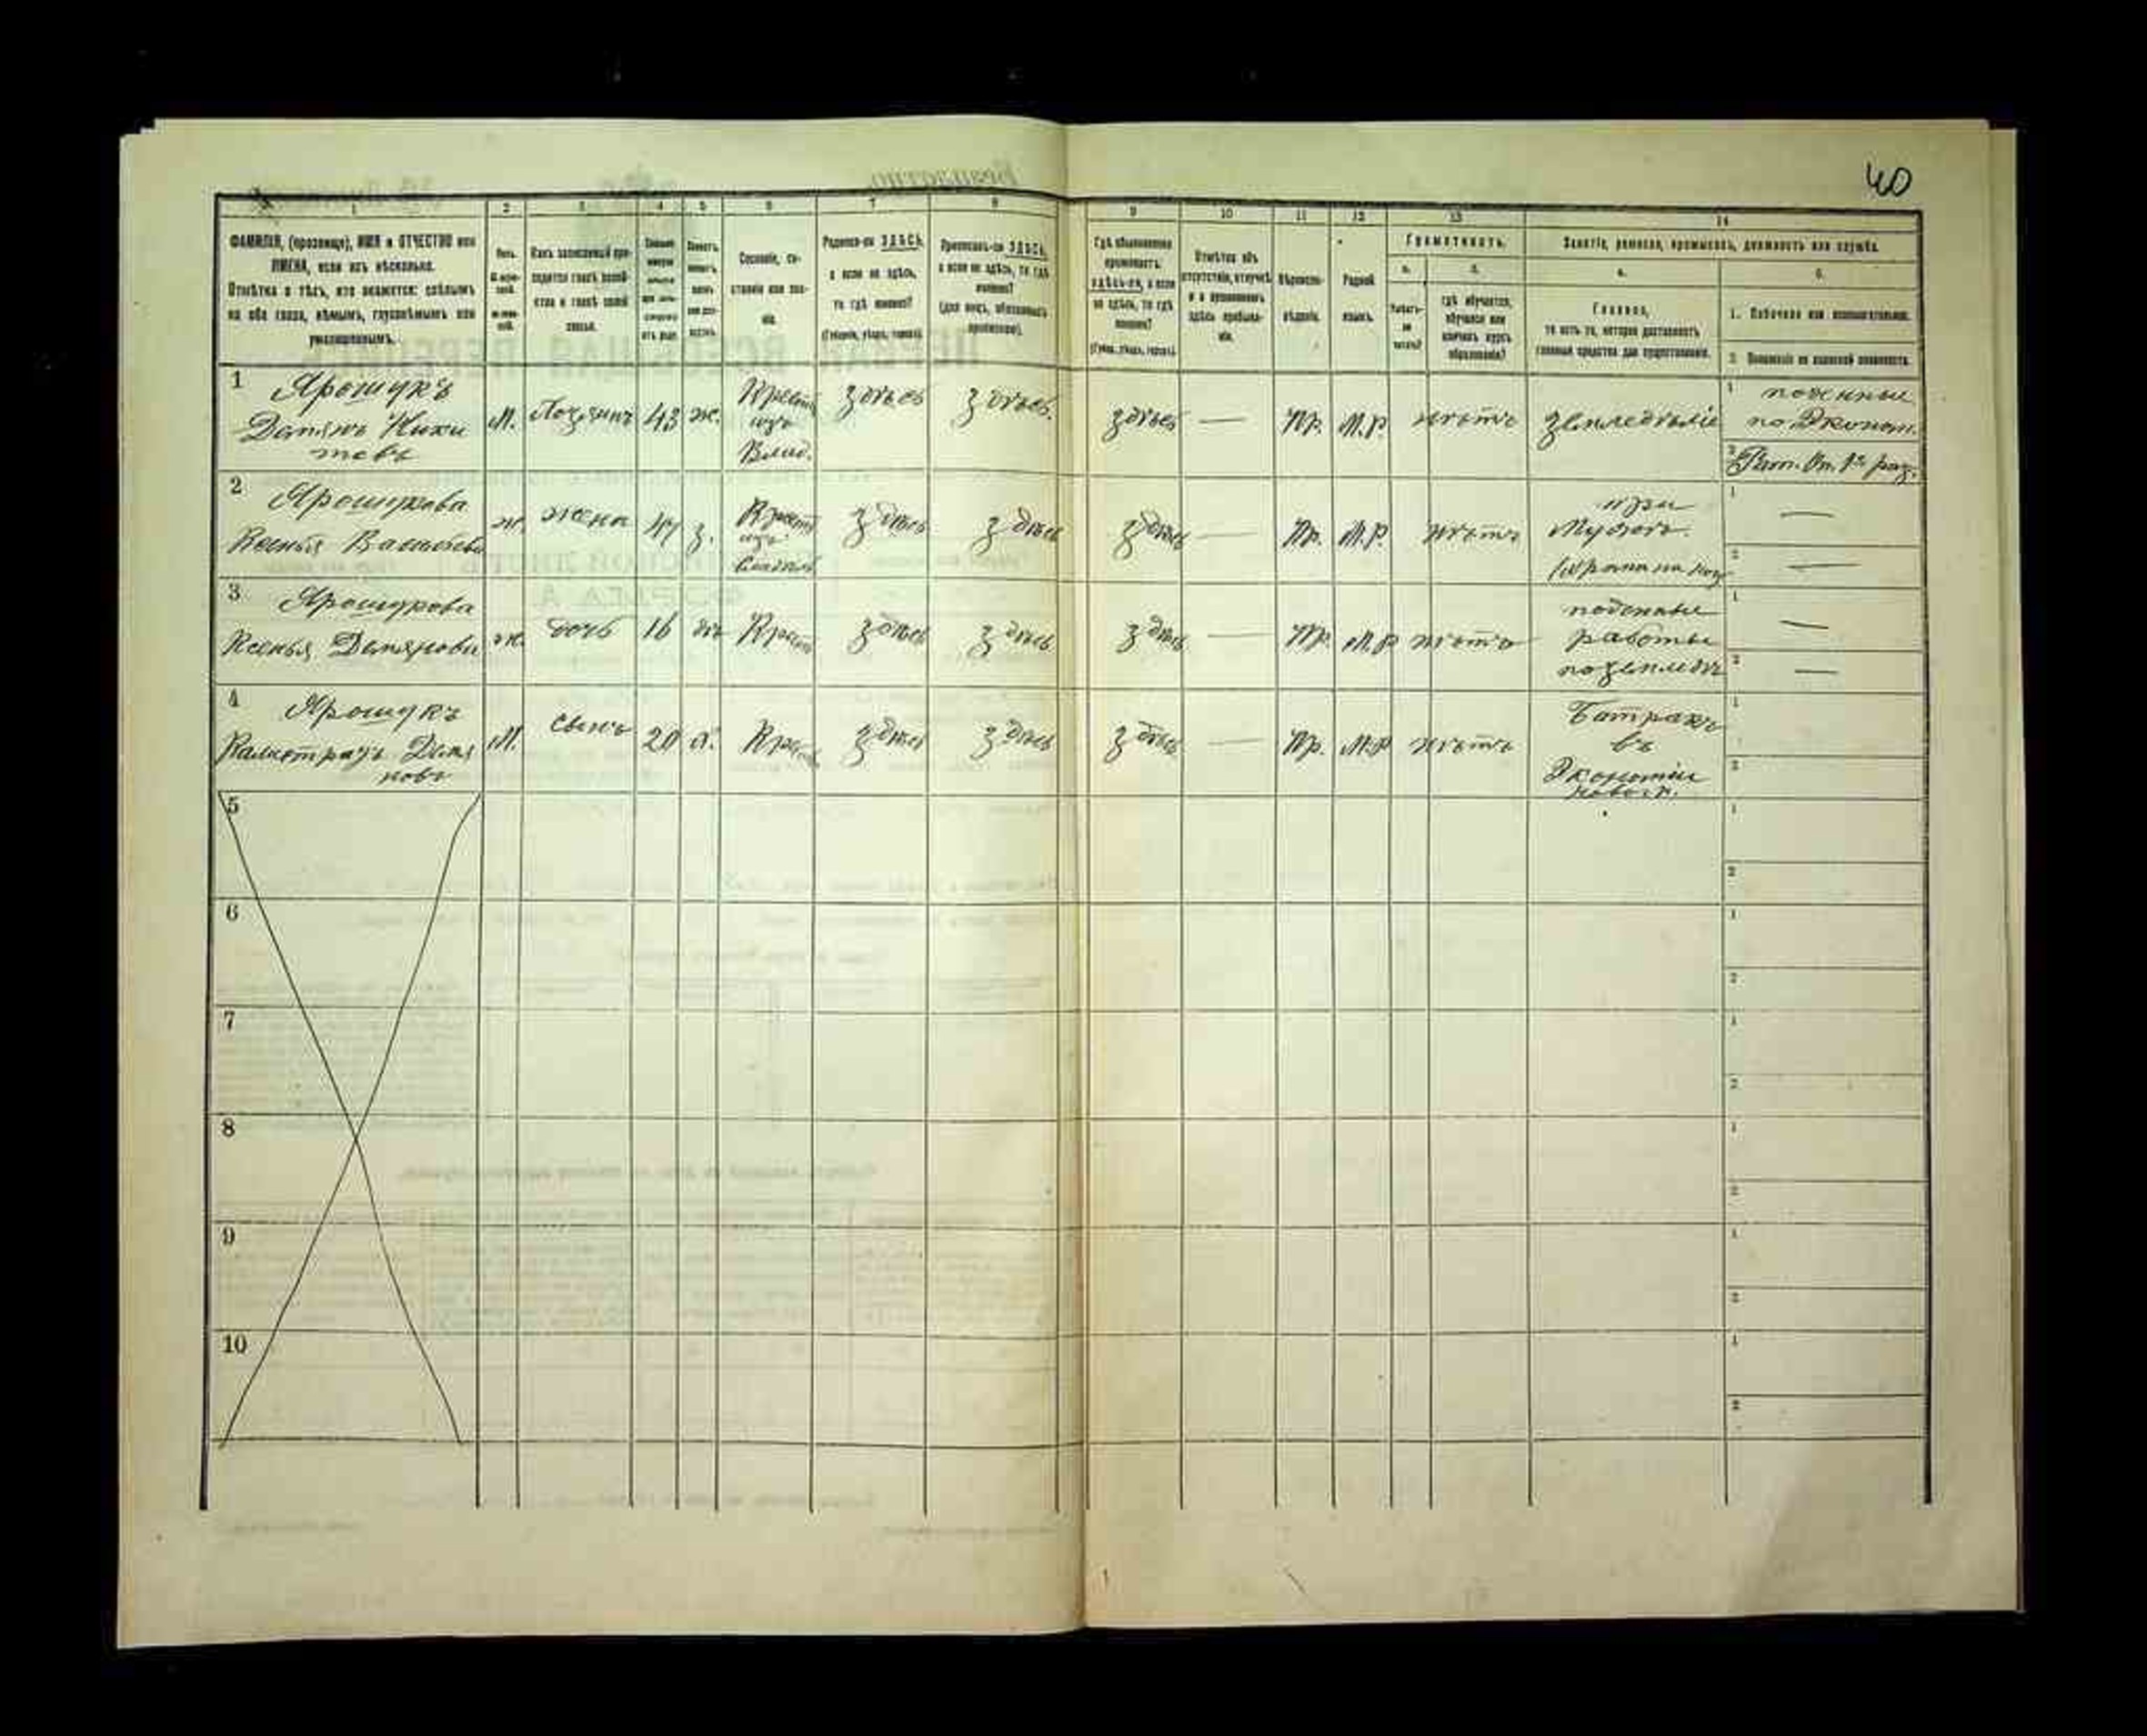 40
1 2 3 4 5 6 7 8 9 10 11 12 13 14
ФАМИЛІЯ, (прозвище), ИМЯ и ОТЧЕСТВО или
ИМЕНА, если ихъ нѣсколько.
Отмѣтка о тѣхъ, кто окажется: слѣпымъ
на оба глаза, нѣмымъ, глухонѣмымъ или
умалишеннымъ.
Полъ.
Какъ записанный при-
ходится главѣ хозяй-
ства и главѣ своей
семьи.
Сословіе, со-
стояніе или зва-
ніе.
Родился-ли ЗДѢСЬ,
а если не здѣсь,
то гдѣ именно?
(Губернія, уѣздъ, городъ).
Приписанъ-ли ЗДѢСЬ,
а если не здѣсь, то гдѣ
именно?
(для лицъ, обязанныхъ
припискою).
Гдѣ обыкновенно
проживаетъ:
здѣсь-ли, а если
не здѣсь, то гдѣ
именно?
(Губ., уѣздъ, городъ).
Отмѣтка объ
отсутствіи, отлучкѣ
и о временномъ
здѣсь пребыва-
ніи.
Вѣроиспо-
вѣданіе.
Родной
языкъ.
Грамотность.
а. б.
Умѣетъ-
ли
читать?
гдѣ обучается,
обучался или
кончилъ курсъ
образованія?
Занятіе, ремесло, промыселъ, должность или служба.
а. б.
Главное,
то есть то, которое доставляетъ
главныя средства для существованія.
1. Побочное или вспомогательное.
2. Положеніе по воинской повинности.
1 Ярощукъ
Демянъ Ники
товъ
М. Хозяинъ 43 ж.
Крест
изъ
Влад.
здѣсь здѣсь. здѣсь — Пр. М.Р. нѣтъ земледѣліе
1 поденные
по Эконом.
2
2 Ярощукова
Ксенья Васильева
ж. жена 47 з.
Крест
изъ
здѣсь здѣсь здѣсь — Пр. М.Р. нѣтъ
при
Мужѣ.
1 —
2 —
3 Ярощукова
Ксенья Демянова
ж. дочь 16 дѣ Крест здѣсь здѣсь здѣсь — Пр. М.Р нѣтъ
поденные
работы
по земледѣ
1 —
2 —
4 Ярощукъ
Калистратъ Демя
новъ
М. сынъ 20 х. Крест здѣсь здѣсь здѣсь — Пр. М.Р нѣтъ
Батракъ
въ
Экономіи
1
2
5 1
2
6 1
2
7 1
2
8 1
2
9 1
2
10 1
2